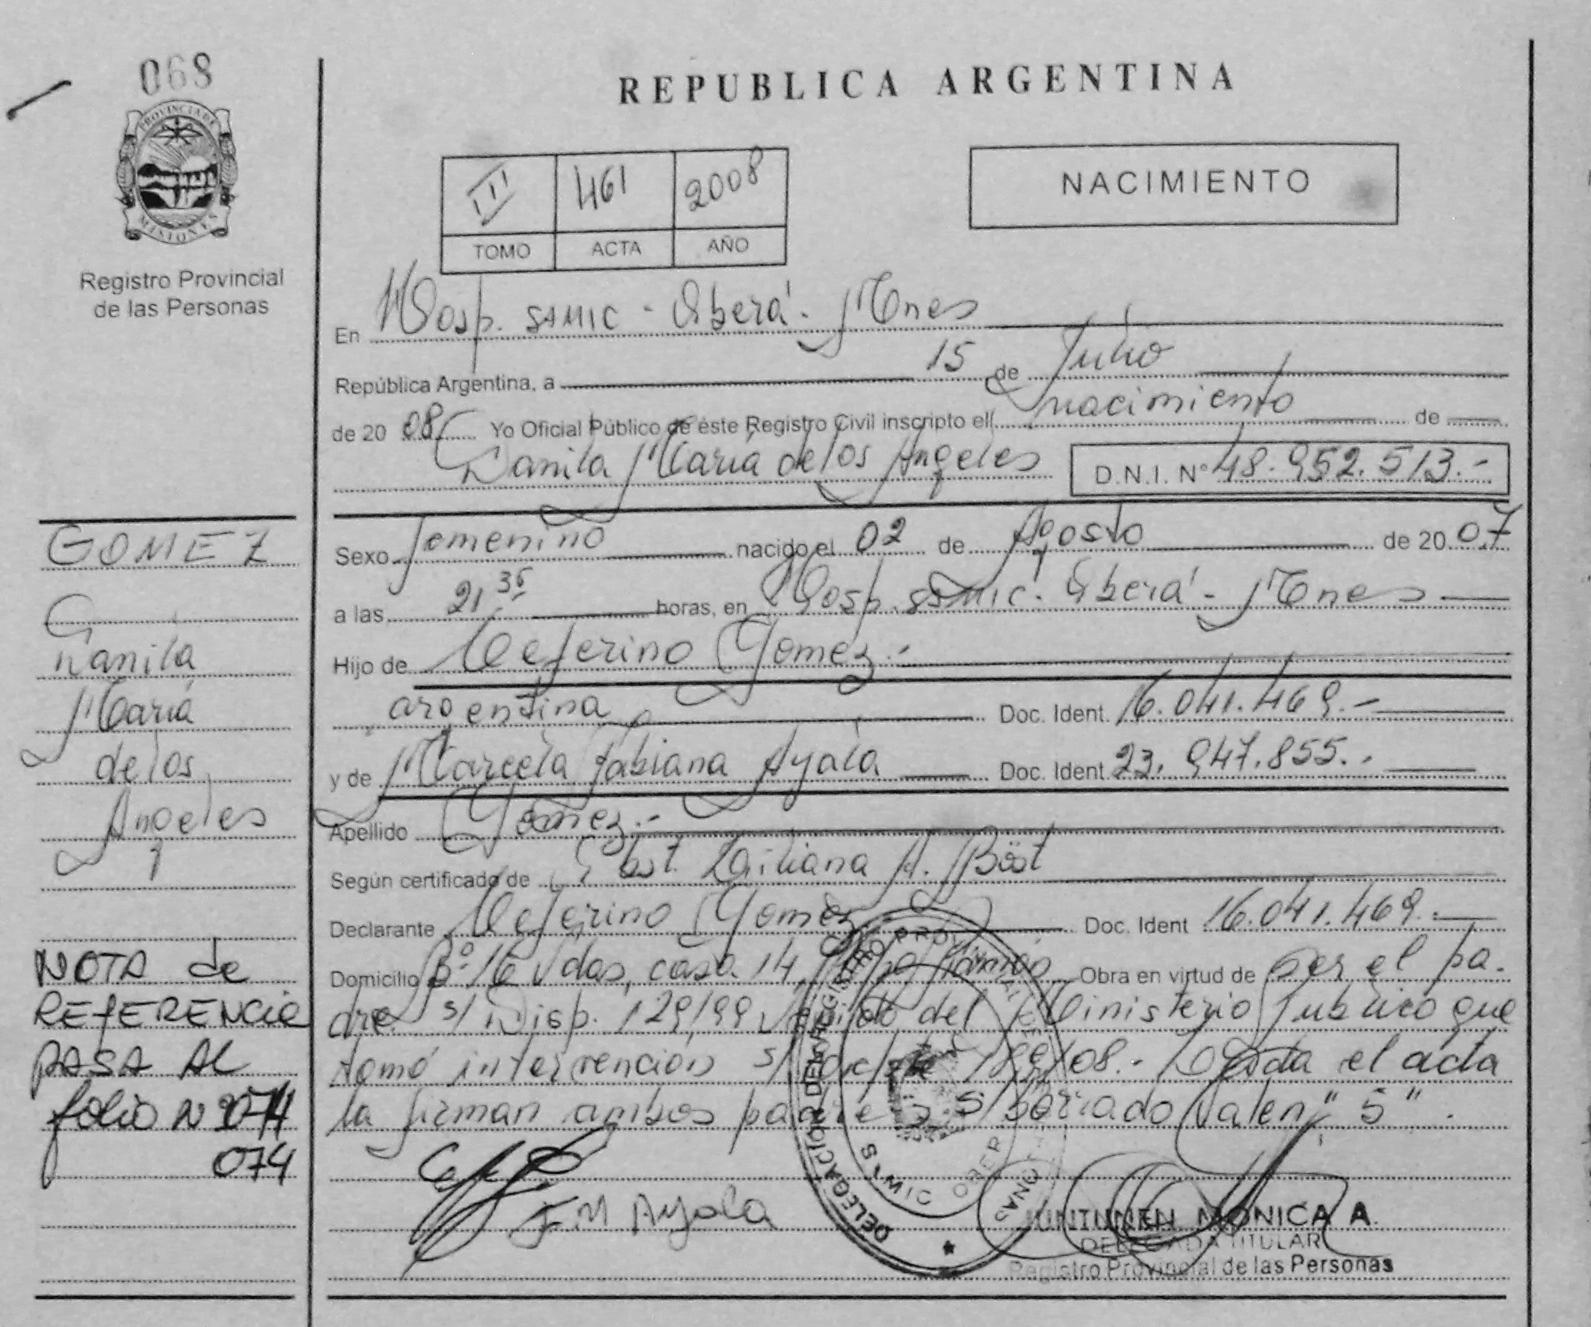 068
REPUBLICA ARGENTINA
PROVINCIA DE
MISIONES
Registro Provincial
de las Personas
III 461 2008
TOMO ACTA AÑO
NACIMIENTO
En Hosp. SAMIC - Oberá - Mnes
República Argentina, a 15 de Julio
de 2008 Yo Oficial Público de éste Registro Civil inscripto el nacimiento de
Danila María de los Angeles D.N.I. Nº 48.952.513.-
Sexo femenino nacido el 02 de Agosto de 2007
a las 21.35 horas, en Hosp. SAMIC. Oberá - Mnes
Hijo de Ceferino Gomez.-
argentina Doc. Ident. 16.041.469.-
y de Marcela Fabiana Ayala Doc. Ident. 23.947.855.-
Apellido Gomez.-
Según certificado de Obst. Liliana A. Böst
Declarante Ceferino Gomez Doc. Ident 16.041.469.-
Domicilio Bº 16 Vdas, casa 14, Obra en virtud de ser el pa-
dre s/ Disp. 129/99 del Ministerio Publico que
tomó intervención s/ 189/08.- Leida el acta
la firman ambos padres s/ borrado Valen "5".
GOMEZ
Danila
María
de los
Angeles
NOTA de
REFERENCIA
PASA AL
folio Nº 074
074
F M Ayala
DELEGACIÓN DEL REGISTRO PROVINCIAL
SAMIC OBERA
MONICA A.
DELEGADA TITULAR
Registro Provincial de las Personas